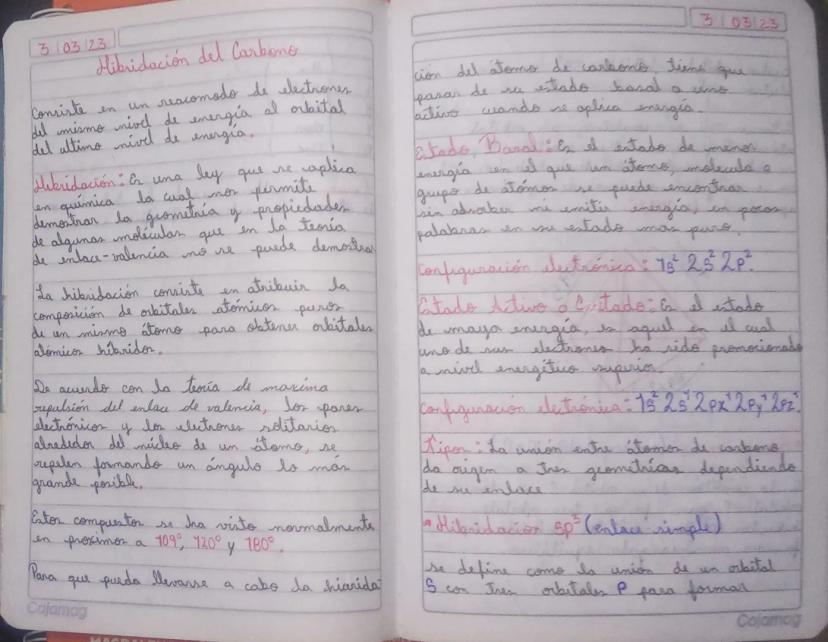 3 03 23
Hibridación del Carbono
Consiste en un reacomodo de electrones
del mismo nivel de energía al orbital
del ultimo nivel de energía.
Hibridación: Es una ley que se aplica
en química la cual nos permite
demostrar la geometría y propiedades
de algunas moléculas que en la teoría
de enlace-valencia no se puede demostrar
La hibridación consiste en atribuir la
composición de orbitales atómicos puros
de un mismo átomo para obtener orbitales
atómicos híbridos.
De acuerdo con la teoría de maxima
repulsión del enlace de valencia, los pares
electrónicos y los electrones solitarios
alrededor del núcleo de un átomo, se
repelen formando un ángulo lo más
grande posible.
Estos compuestos se ha visto normalmente
en proximos a 109°, 120° y 180°.
Para que pueda llevarse a cabo la hiarida
Cajamag
3 03 23
ción del átomo de carbono, tiene que
pasar de su estado basal a uno
activo cuando se aplica energía.
Estado Basal: Es el estado de menor
energía en el que un átomo, molecula o
grupo de átomos se puede encontrar
sin adsorber ni emitir energía, en pocas
palabras en su estado mas puro.
Configuración electrónica: 1s² 2s² 2p².
Estado Activo o Exitado: Es el estado
de maya energía, es aquel en el cual
uno de sus electrones ha sido promocionado
a nivel energético superior.
Configuración electrónica: 1s² 2s¹ 2px¹ 2py¹ 2pz¹
Tipos: La unión entre átomos de carbono
da origen a tres geometrías dependiendo
de su enlace
Hibridación sp³ (enlace simple)
se define como la unión de un orbital
S con tres orbitales P para formar
Cajamag